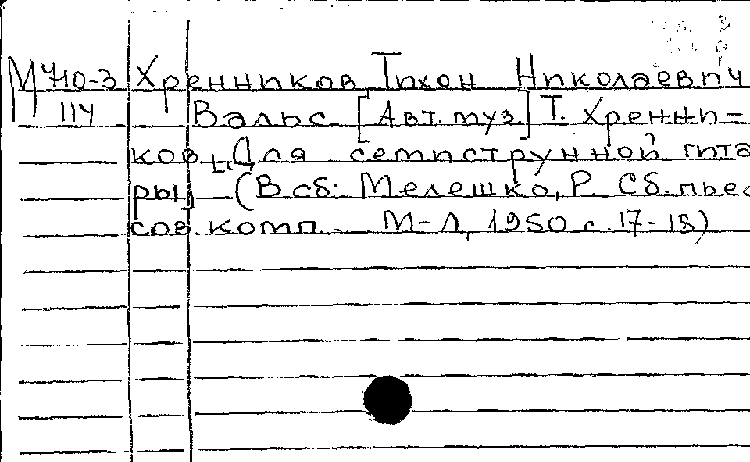 М 710-3 Хренников, Тихон Николаевич
114 Вальс. [Авт. муз.] Т. Хренни-
ков, [Для семиструнной гита
ры] (В сб: Мелешко, Р. Сб. пьес
сов. комп. М-Л, 1950 с. 17-18)